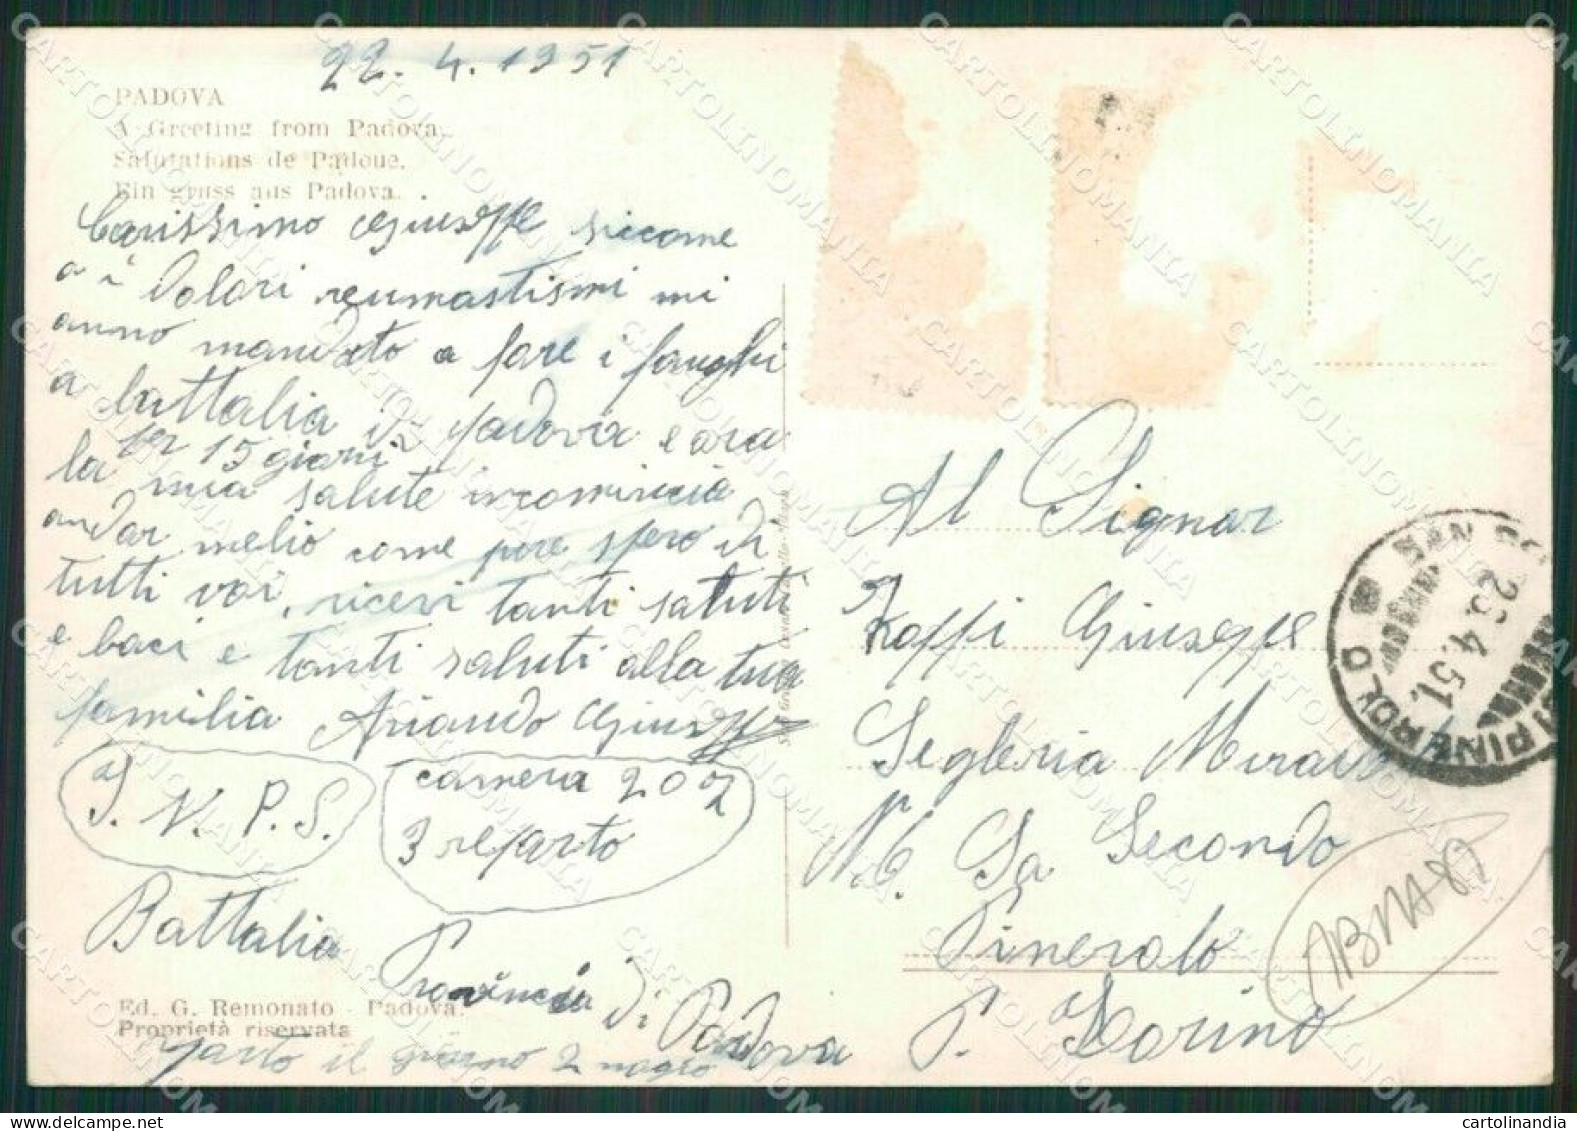 22.4.1951
PADOVA
A Greeting from Padova.
Salutations de Padoue.
Ein gruss aus Padova.
Carissimo Giuseppe siccome
a i dolori reumastismi mi
anno mandato a fare i fanghi
a battalia di padova e ora
per 15 giorni
la mia salute incomincia
andar melio come pure spero di
tutti voi, ricevi tanti saluti
e baci e tanti saluti alla tua
familia Giuseppe
I. N. P. S.
camera 202
3 reparto
Battalia Provincia di Padova
Ed. G. Remonato - Padova.
Proprietà riservata
parto il giorno 2 magio
Al Signor
Giuseppe
Segheria
Sa Secondo
Pinerolo
P. Torino
SAN
PINEROLO
26.4.51.
CARTOLINOMANIA
cartolinandia